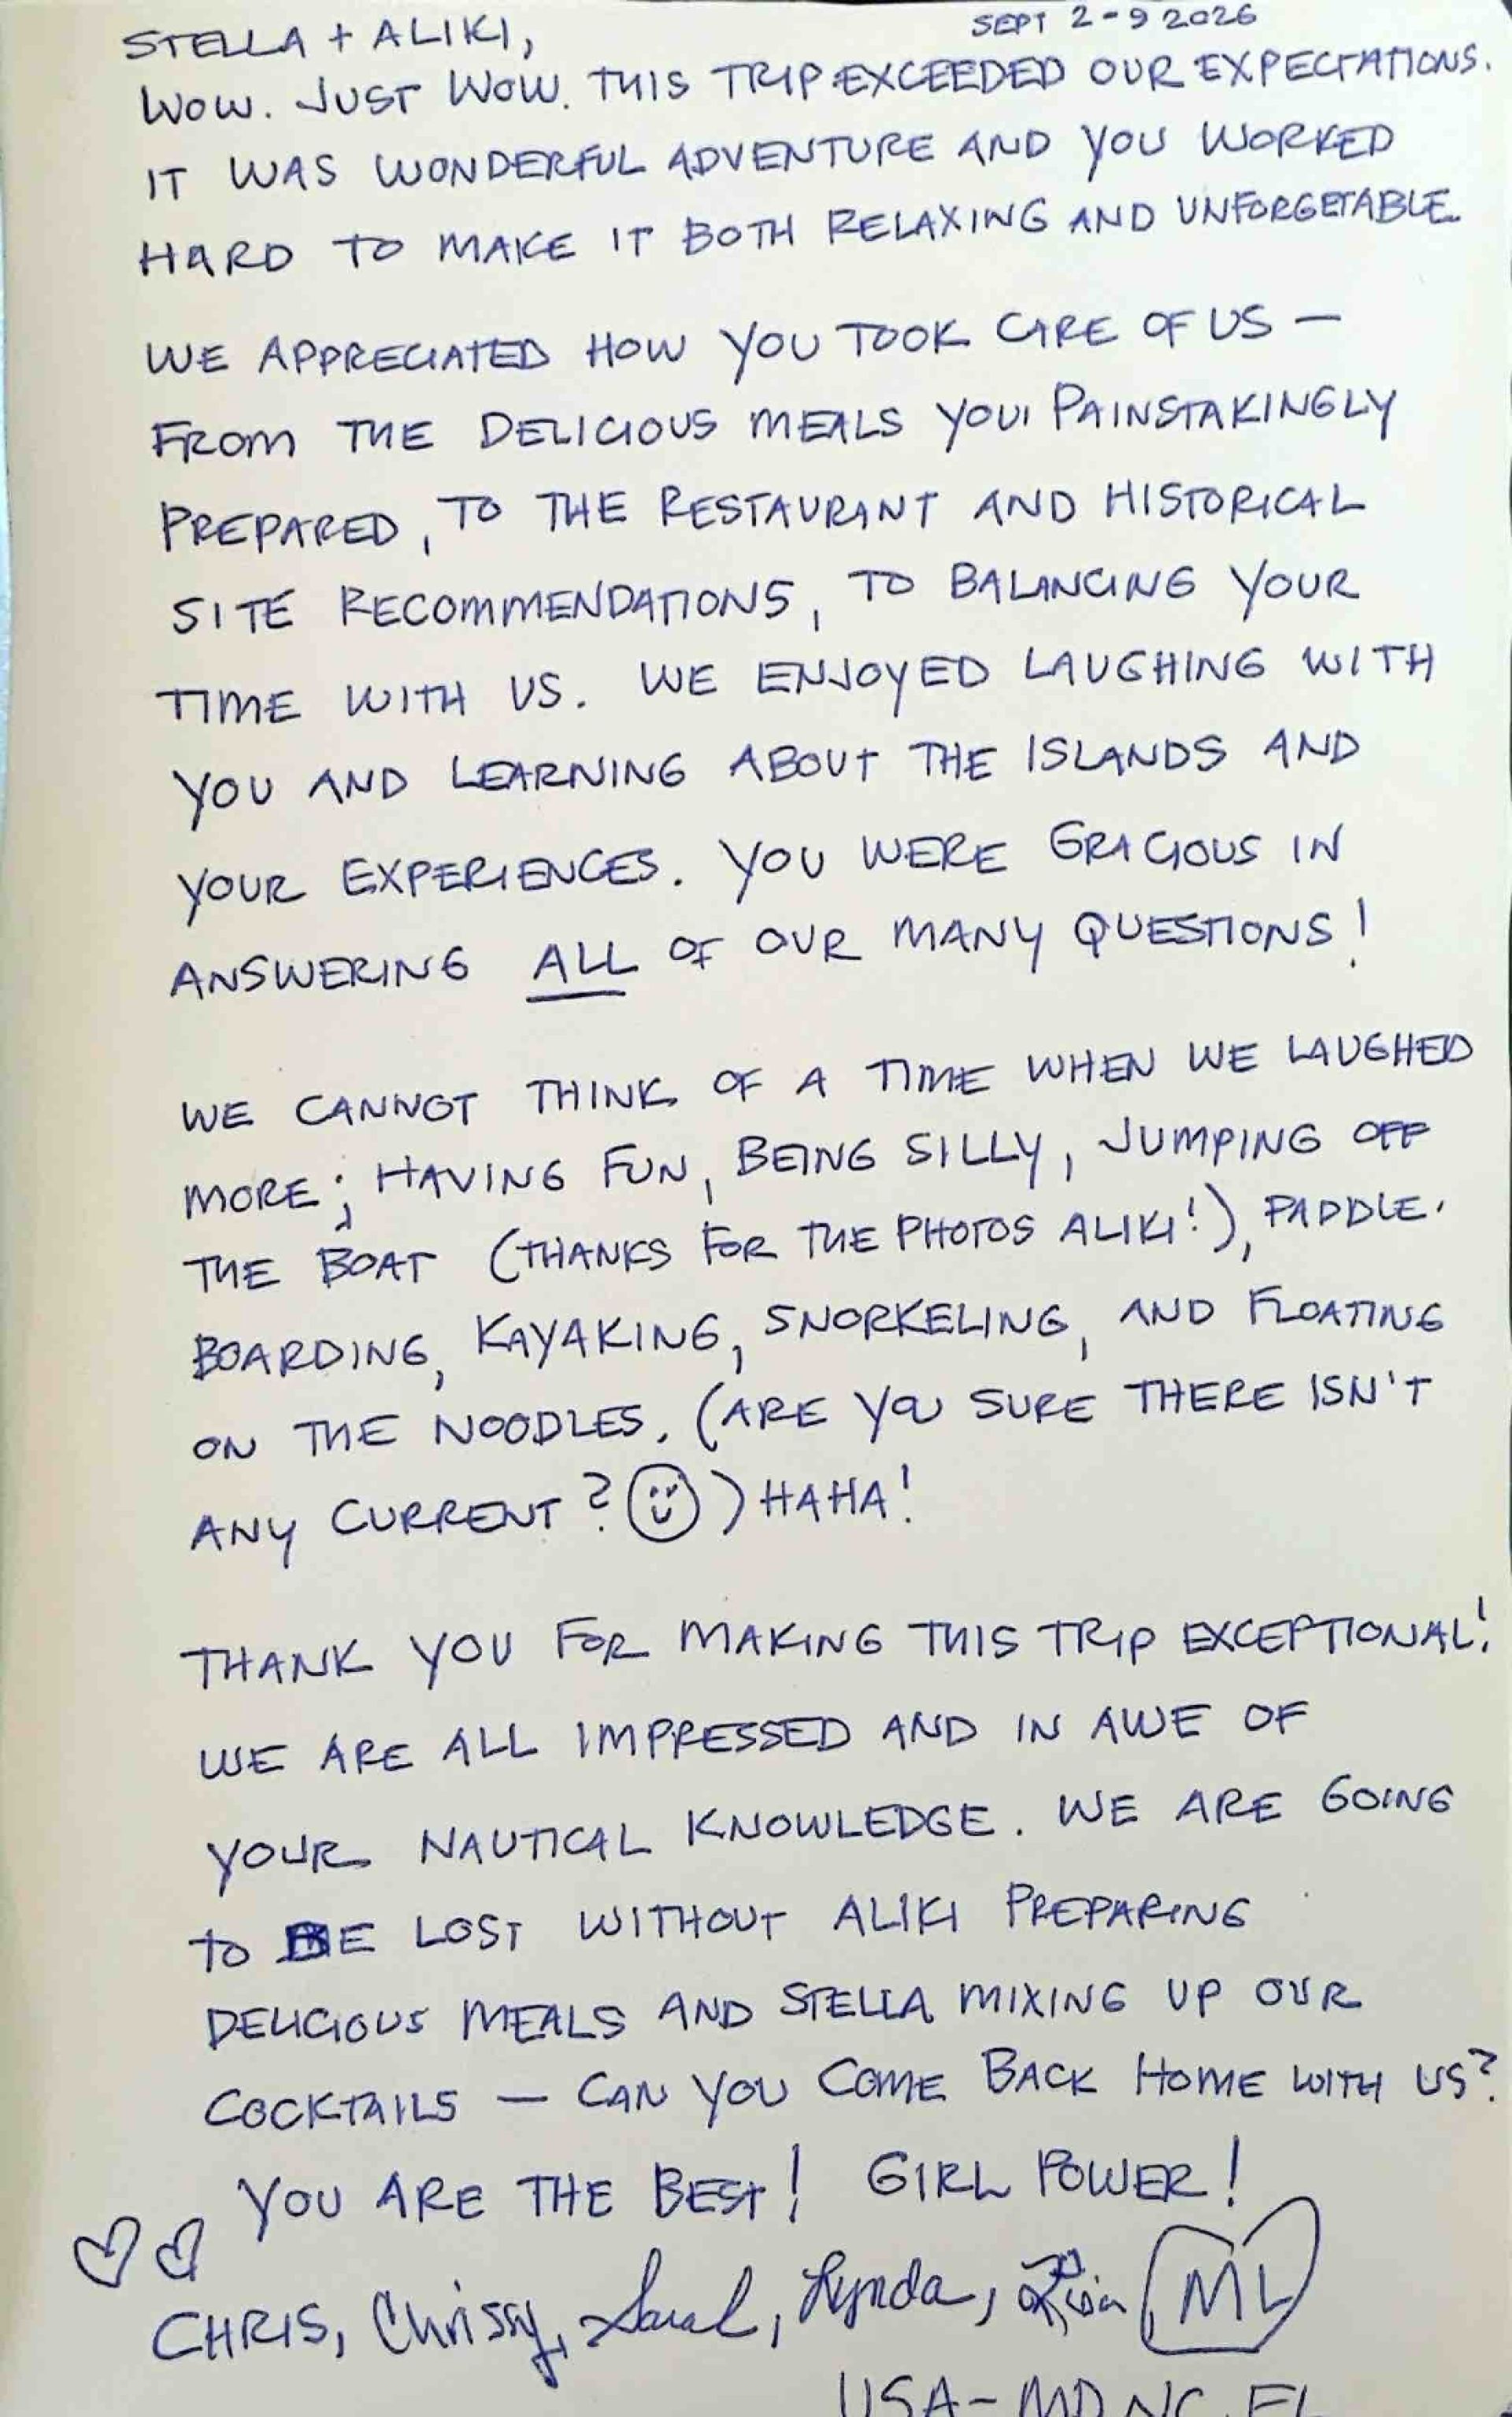 SEPT 2-9 2026
STELLA + ALIKI,
WOW. JUST WOW. THIS TRIP EXCEEDED OUR EXPECTATIONS.
IT WAS WONDERFUL ADVENTURE AND YOU WORKED
HARD TO MAKE IT BOTH RELAXING AND UNFORGETABLE.
WE APPRECIATED HOW YOU TOOK CARE OF US —
FROM THE DELICIOUS MEALS YOU PAINSTAKINGLY
PREPARED, TO THE RESTAURANT AND HISTORICAL
SITE RECOMMENDATIONS, TO BALANCING YOUR
TIME WITH US. WE ENJOYED LAUGHING WITH
YOU AND LEARNING ABOUT THE ISLANDS AND
YOUR EXPERIENCES. YOU WERE GRACIOUS IN
ANSWERING ALL OF OUR MANY QUESTIONS!
WE CANNOT THINK OF A TIME WHEN WE LAUGHED
MORE; HAVING FUN, BEING SILLY, JUMPING OFF
THE BOAT (THANKS FOR THE PHOTOS ALIKI!), PADDLE-
BOARDING, KAYAKING, SNORKELING, AND FLOATING
ON THE NOODLES. (ARE YOU SURE THERE ISN'T
ANY CURRENT? ) HAHA!
THANK YOU FOR MAKING THIS TRIP EXCEPTIONAL!
WE ARE ALL IMPRESSED AND IN AWE OF
YOUR NAUTICAL KNOWLEDGE. WE ARE GOING
TO BE LOST WITHOUT ALIKI PREPARING
DELICIOUS MEALS AND STELLA MIXING UP OUR
COCKTAILS — CAN YOU COME BACK HOME WITH US?
YOU ARE THE BEST! GIRL POWER!
CHRIS, Chrissy, Sarah, Lynda, ML
USA - MD, NC, FL